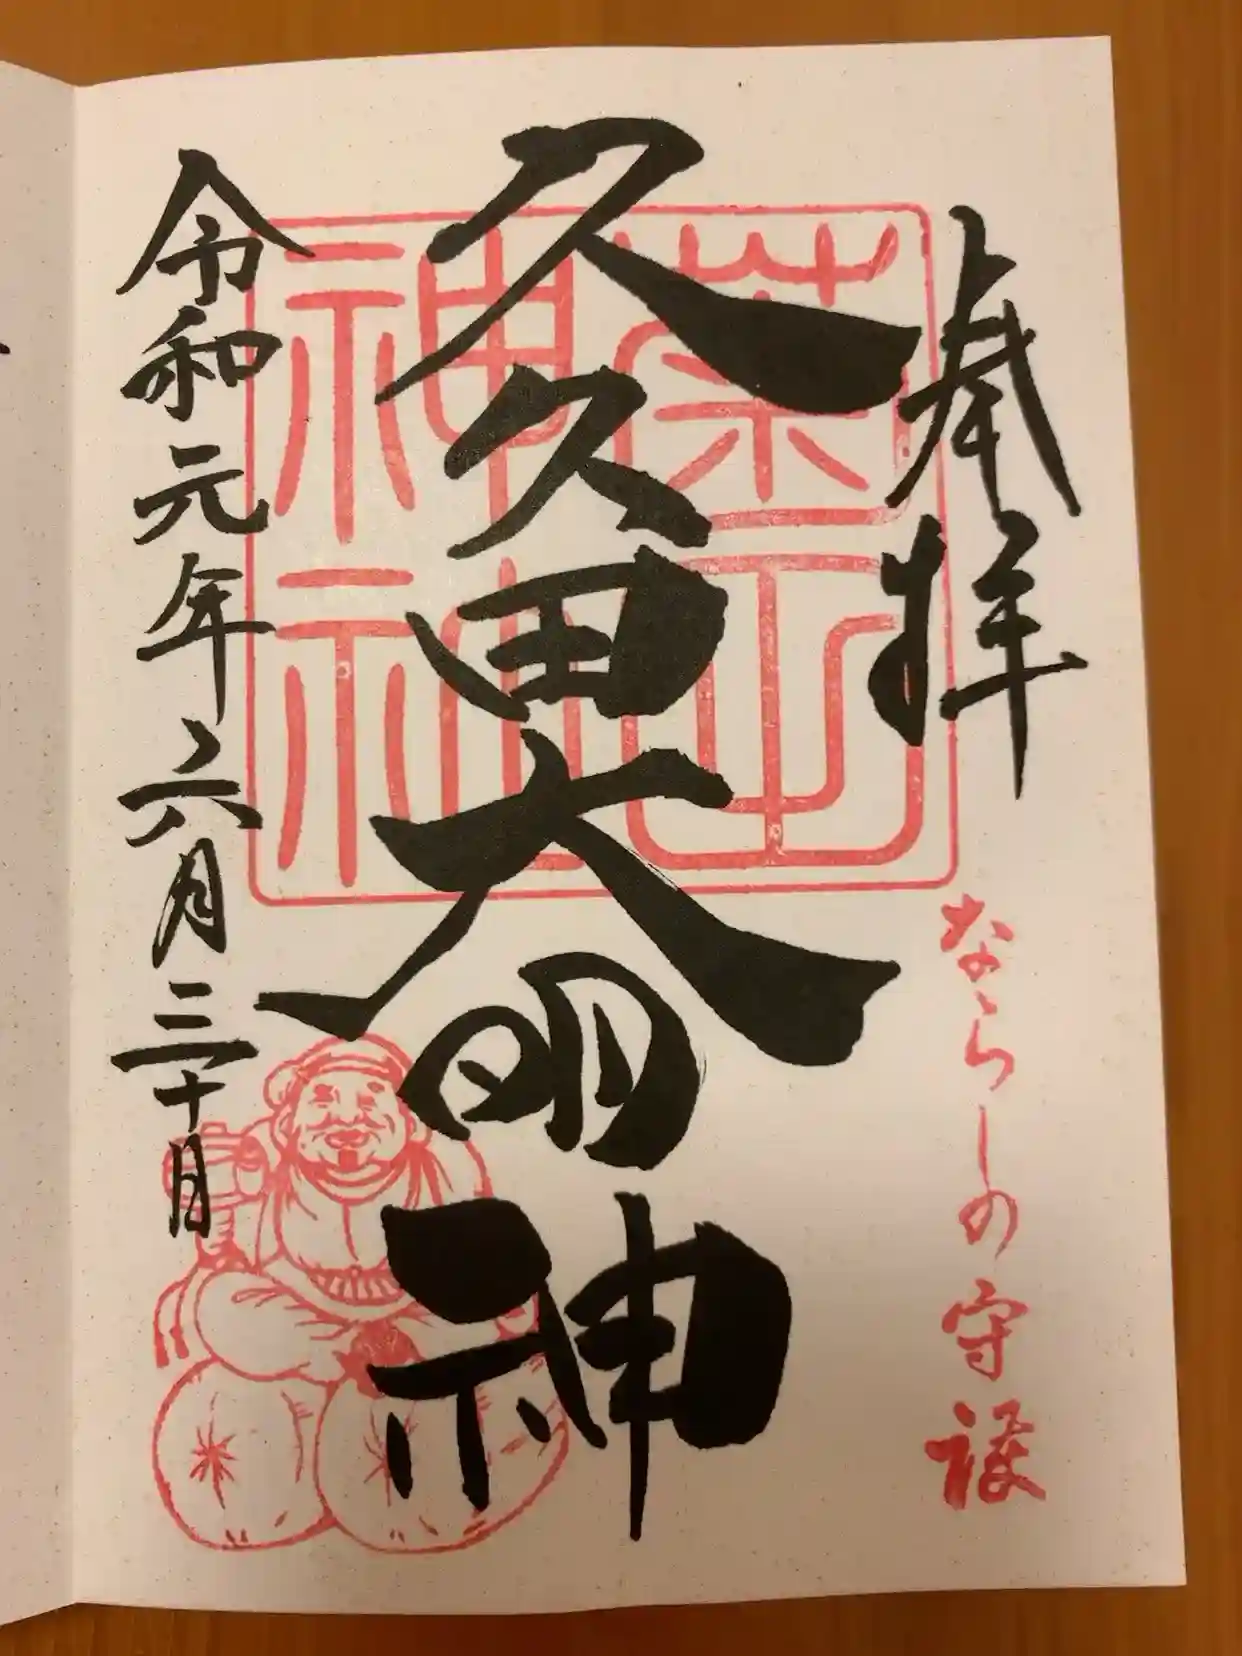 奉拝
ならしの守護
久久田大明神
菊田
神社
令和元年六月三十日